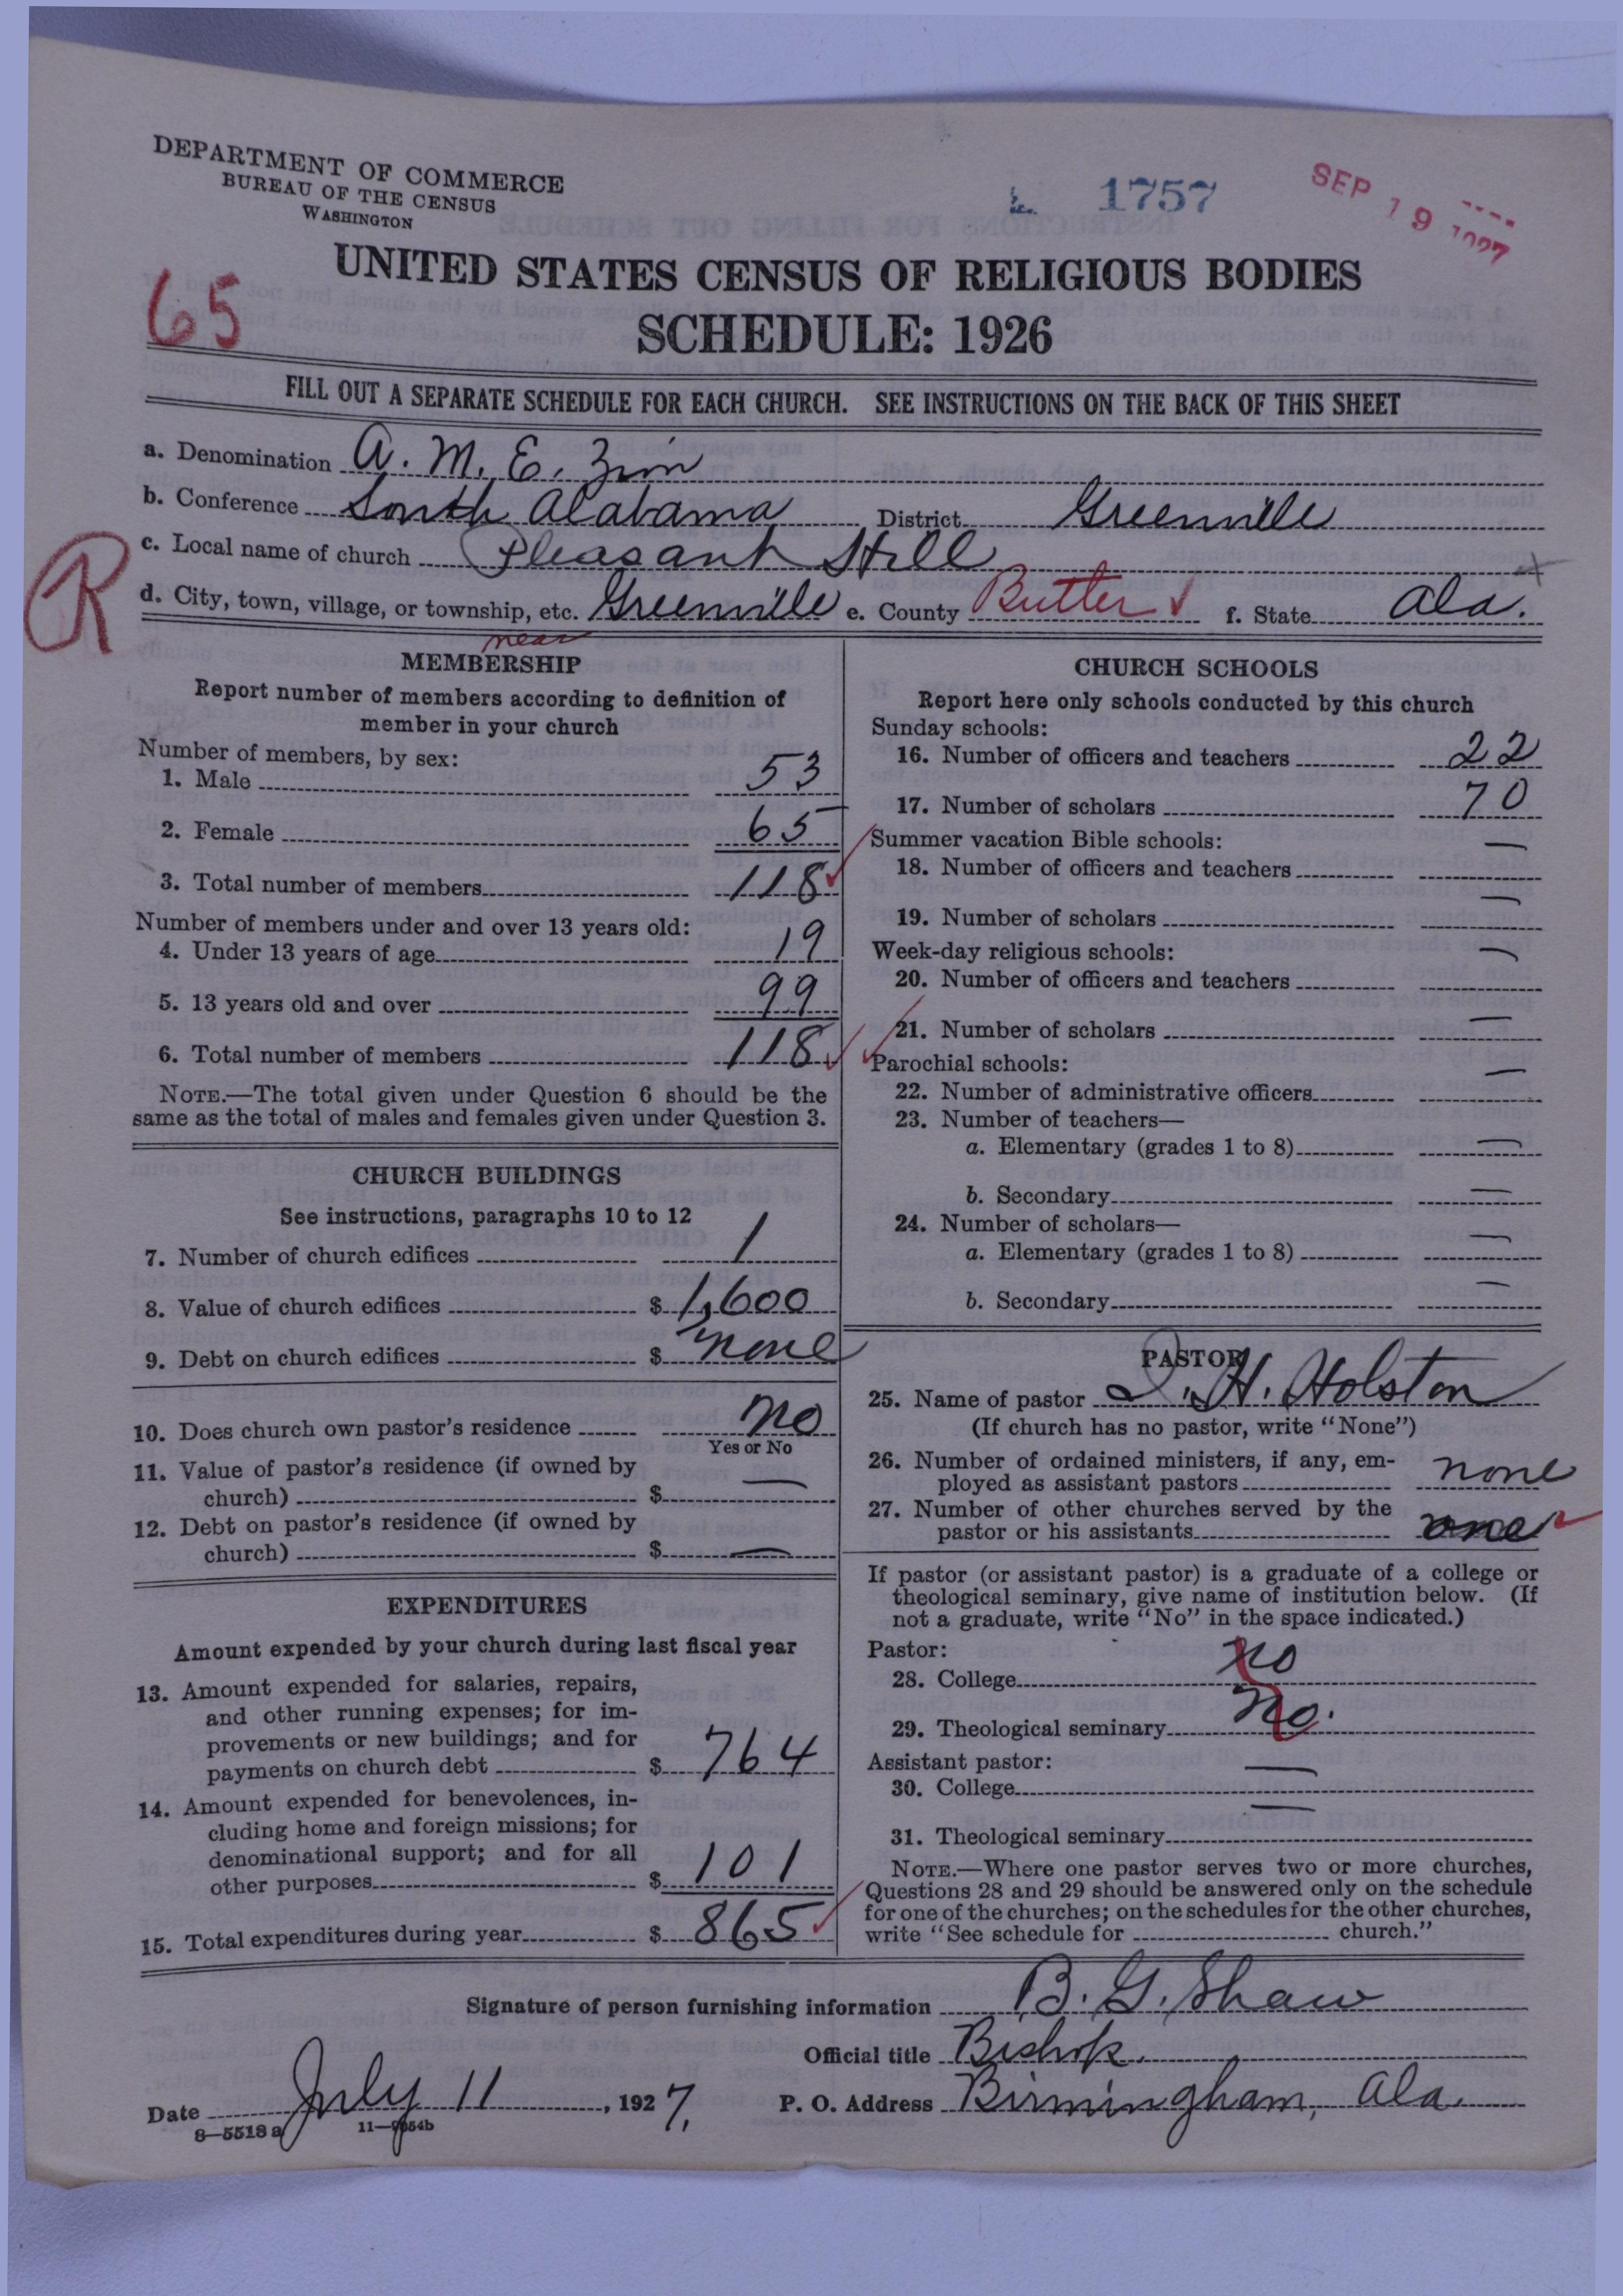 DEPARTMENT OF COMMERCE
BUREAU OF THE CENSUS
WASHINGTON
1757
SEP 19 1927
UNITED STATES CENSUS OF RELIGIOUS BODIES
SCHEDULE: 1926
65
FILL OUT A SEPARATE SCHEDULE FOR EACH CHURCH. SEE INSTRUCTIONS ON THE BACK OF THIS SHEET
a. Denomination A. M. E. Zion
b. Conference South Alabama District Greenville
c. Local name of church Pleasant Hill
R
d. City, town, village, or township, etc. Greenville e. County Butler f. State Ala.
near
MEMBERSHIP
Report number of members according to definition of
member in your church
Number of members, by sex:
1. Male 53
2. Female 65
3. Total number of members 118
Number of members under and over 13 years old:
4. Under 13 years of age 19
5. 13 years old and over 99
6. Total number of members 118
NOTE.—The total given under Question 6 should be the
same as the total of males and females given under Question 3.
CHURCH BUILDINGS
See instructions, paragraphs 10 to 12
7. Number of church edifices 1
8. Value of church edifices $ 1,600
9. Debt on church edifices $ none
10. Does church own pastor's residence no
Yes or No
11. Value of pastor's residence (if owned by
church) $ —
12. Debt on pastor's residence (if owned by
church) $ —
EXPENDITURES
Amount expended by your church during last fiscal year
13. Amount expended for salaries, repairs,
and other running expenses; for im-
provements or new buildings; and for
payments on church debt $ 764
14. Amount expended for benevolences, in-
cluding home and foreign missions; for
denominational support; and for all
other purposes $ 101
15. Total expenditures during year $ 865
CHURCH SCHOOLS
Report here only schools conducted by this church
Sunday schools:
16. Number of officers and teachers 22
17. Number of scholars 70
Summer vacation Bible schools:
18. Number of officers and teachers —
19. Number of scholars —
Week-day religious schools:
20. Number of officers and teachers —
21. Number of scholars —
Parochial schools:
22. Number of administrative officers —
23. Number of teachers—
a. Elementary (grades 1 to 8) —
b. Secondary —
24. Number of scholars—
a. Elementary (grades 1 to 8) —
b. Secondary —
PASTOR
25. Name of pastor I. H. Holston
(If church has no pastor, write "None")
26. Number of ordained ministers, if any, em-
ployed as assistant pastors none
27. Number of other churches served by the
pastor or his assistants one
If pastor (or assistant pastor) is a graduate of a college or
theological seminary, give name of institution below. (If
not a graduate, write "No" in the space indicated.)
Pastor:
28. College no
29. Theological seminary no.
Assistant pastor:
30. College —
31. Theological seminary —
NOTE.—Where one pastor serves two or more churches,
Questions 28 and 29 should be answered only on the schedule
for one of the churches; on the schedules for the other churches,
write "See schedule for church."
Signature of person furnishing information B. G. Shaw
Official title Bishop.
Date July 11, 1927. P. O. Address Birmingham, Ala.
8—5518 a 11—9854b